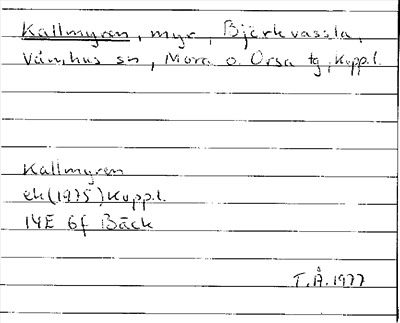 Kallmyren, myr, Björkvassla,
Våmhus sn, Mora o. Orsa tg, Kopp.l.
Kallmyren
ek (1975) Kopp.l.
14E 6f Bäck
T.Å. 1977